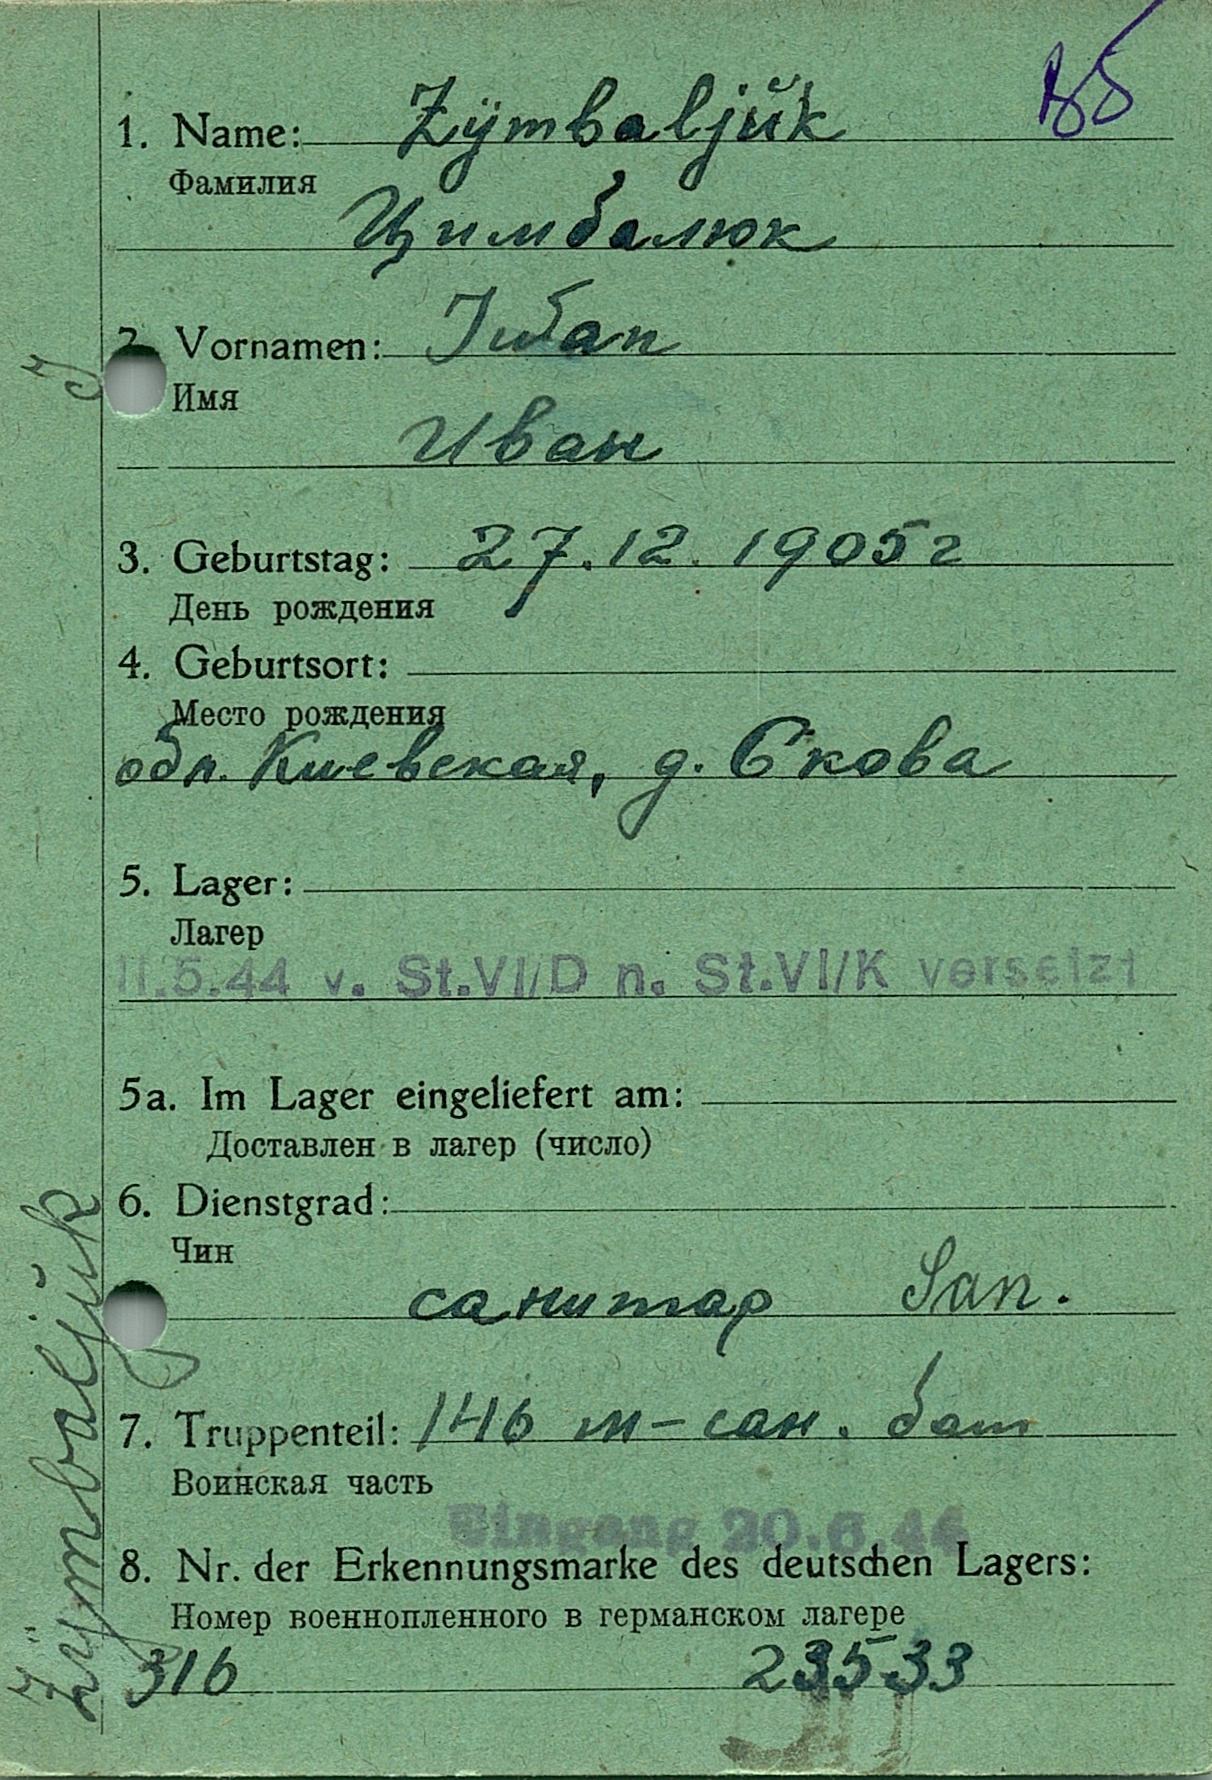 1. Name: Zÿmbaljŭk
Фамилия
Цимбалюк
2. Vornamen: Iwan
Имя
Иван
3. Geburtstag: 27.12.1905г
День рождения
4. Geburtsort:
Место рождения
обл. Киевская, д. Скова
5. Lager:
Лагер
11.5.44 v. St.VI/D n. St.VI/K versetzt
5a. Im Lager eingeliefert am:
Доставлен в лагер (число)
6. Dienstgrad:
Чин
санитар San.
7. Truppenteil: 146 м-сан. бат
Воинская часть
Eingang 20.6.44
8. Nr. der Erkennungsmarke des deutschen Lagers:
Номер военнопленного в германском лагере
316 23533
Zÿmbaljŭk J